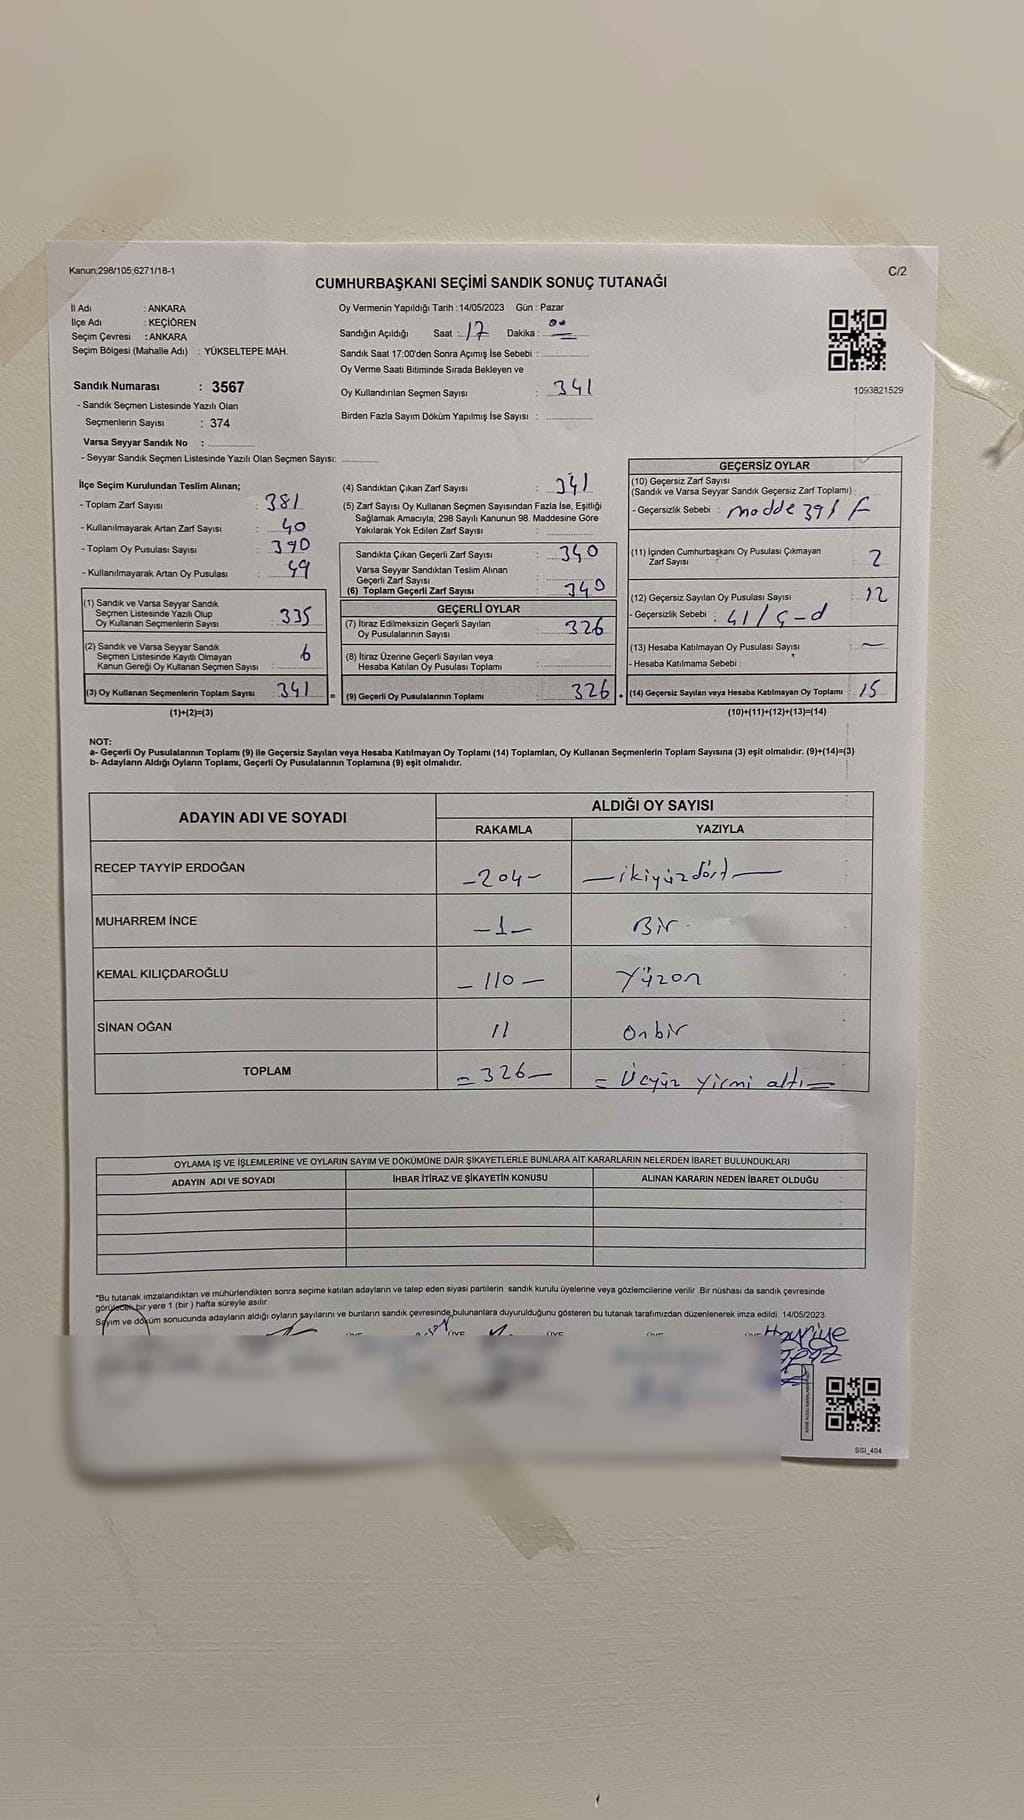 Kanun;298/105;6271/18-1
C/2
CUMHURBAŞKANI SEÇİMİ SANDIK SONUÇ TUTANAĞI
İl Adı : ANKARA
İlçe Adı : KEÇİÖREN
Seçim Çevresi : ANKARA
Seçim Bölgesi (Mahalle Adı) : YÜKSELTEPE MAH.
Sandık Numarası : 3567
- Sandık Seçmen Listesinde Yazılı Olan
Seçmenlerin Sayısı : 374
Varsa Seyyar Sandık No :
- Seyyar Sandık Seçmen Listesinde Yazılı Olan Seçmen Sayısı:
Oy Vermenin Yapıldığı Tarih : 14/05/2023 Gün : Pazar
Sandığın Açıldığı Saat : 17 Dakika : 00
Sandık Saat 17:00'den Sonra Açımış İse Sebebi :
Oy Verme Saati Bitiminde Sırada Bekleyen ve
Oy Kullandırılan Seçmen Sayısı : 341
Birden Fazla Sayım Döküm Yapılmış İse Sayısı :
1093821529
İlçe Seçim Kurulundan Teslim Alınan;
- Toplam Zarf Sayısı : 381
- Kullanılmayarak Artan Zarf Sayısı : 40
- Toplam Oy Pusulası Sayısı : 390
- Kullanılmayarak Artan Oy Pusulası : 49
(1) Sandık ve Varsa Seyyar Sandık
Seçmen Listesinde Yazılı Olup
Oy Kullanan Seçmenlerin Sayısı : 335
(2) Sandık ve Varsa Seyyar Sandık
Seçmen Listesinde Kayıtlı Olmayan
Kanun Gereği Oy Kullanan Seçmen Sayısı : 6
(3) Oy Kullanan Seçmenlerin Toplam Sayısı : 341 =
(1)+(2)=(3)
(4) Sandıktan Çıkan Zarf Sayısı : 341
(5) Zarf Sayısı Oy Kullanan Seçmen Sayısından Fazla İse, Eşitliği
Sağlamak Amacıyla, 298 Sayılı Kanunun 98. Maddesine Göre
Yakılarak Yok Edilen Zarf Sayısı :
Sandıkta Çıkan Geçerli Zarf Sayısı : 340
Varsa Seyyar Sandıktan Teslim Alınan
Geçerli Zarf Sayısı :
(6) Toplam Geçerli Zarf Sayısı : 340
GEÇERLİ OYLAR
(7) İtiraz Edilmeksizin Geçerli Sayılan
Oy Pusulalarının Sayısı : 326
(8) İtiraz Üzerine Geçerli Sayılan veya
Hesaba Katılan Oy Pusulası Toplamı :
(9) Geçerli Oy Pusulalarının Toplamı : 326 +
GEÇERSİZ OYLAR
(10) Geçersiz Zarf Sayısı
(Sandık ve Varsa Seyyar Sandık Geçersiz Zarf Toplamı) :
- Geçersizlik Sebebi : madde 39/ F
(11) İçinden Cumhurbaşkanı Oy Pusulası Çıkmayan
Zarf Sayısı : 2
(12) Geçersiz Sayılan Oy Pusulası Sayısı : 12
- Geçersizlik Sebebi : 41/ ç-d
(13) Hesaba Katılmayan Oy Pusulası Sayısı : —
- Hesaba Katılmama Sebebi :
(14) Geçersiz Sayılan veya Hesaba Katılmayan Oy Toplamı : 15
(10)+(11)+(12)+(13)=(14)
NOT:
a- Geçerli Oy Pusulalarının Toplamı (9) ile Geçersiz Sayılan veya Hesaba Katılmayan Oy Toplamı (14) Toplamları, Oy Kullanan Seçmenlerin Toplam Sayısına (3) eşit olmalıdır. (9)+(14)=(3)
b- Adayların Aldığı Oyların Toplamı, Geçerli Oy Pusulalarının Toplamına (9) eşit olmalıdır.
ADAYIN ADI VE SOYADI
ALDIĞI OY SAYISI
RAKAMLA YAZIYLA
RECEP TAYYİP ERDOĞAN -204- — ikiyüzdört —
MUHARREM İNCE -1- Bir
KEMAL KILIÇDAROĞLU - 110 - Yüzon
SİNAN OĞAN 11 Onbir
TOPLAM = 326 - = Üçyüz yirmi altı =
OYLAMA İŞ VE İŞLEMLERİNE VE OYLARIN SAYIM VE DÖKÜMÜNE DAİR ŞİKAYETLERLE BUNLARA AİT KARARLARIN NELERDEN İBARET BULUNDUKLARI
ADAYIN ADI VE SOYADI İHBAR İTİRAZ VE ŞİKAYETİN KONUSU ALINAN KARARIN NEDEN İBARET OLDUĞU
*Bu tutanak imzalandıktan ve mühürlendikten sonra seçime katılan adayların ve talep eden siyasi partilerin sandık kurulu üyelerine veya gözlemcilerine verilir. Bir nüshası da sandık çevresinde
görülecek bir yere 1 (bir) hafta süreyle asılır.
Sayım ve döküm sonucunda adayların aldığı oyların sayılarını ve bunların sandık çevresinde bulunanlara duyurulduğunu gösteren bu tutanak tarafımızdan düzenlenerek imza edildi. 14/05/2023
ÜYE ÜYE ÜYE
Hayriye
SSI_404